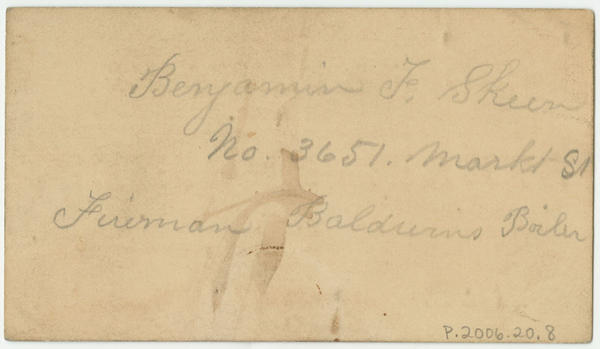 Benjamin F. Skeen
No. 3651. Markt St
Fireman Baldwins Boiler
P.2006.20.8